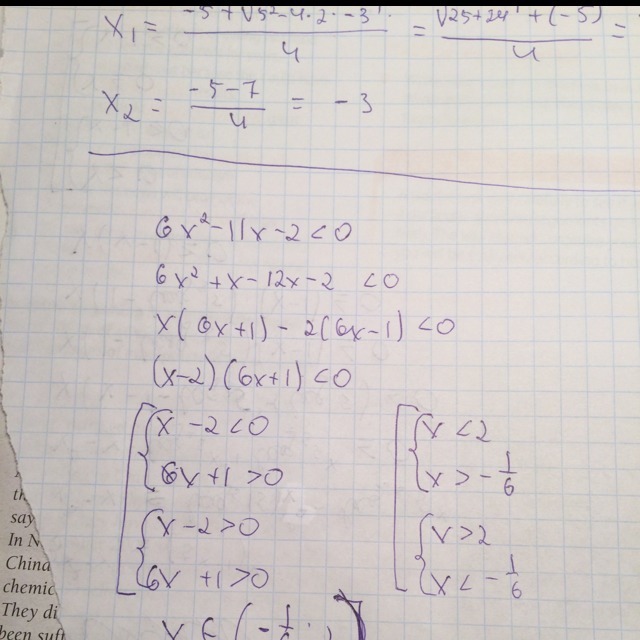 X₁ = (-5 + √5² - 4·2·-3) / 4 = (√25+24 + (-5)) / 4 =
X₂ = (-5-7) / 4 = -3
6x² - 11x - 2 < 0
6x² + x - 12x - 2 < 0
x(6x+1) - 2(6x-1) < 0
(x-2)(6x+1) < 0
[ { x - 2 < 0 [ { x < 2
6x + 1 > 0 x > -1/6
{ x - 2 > 0 { x > 2
6x + 1 > 0 x < -1/6
say
In N
China
chemic
They di
been suff